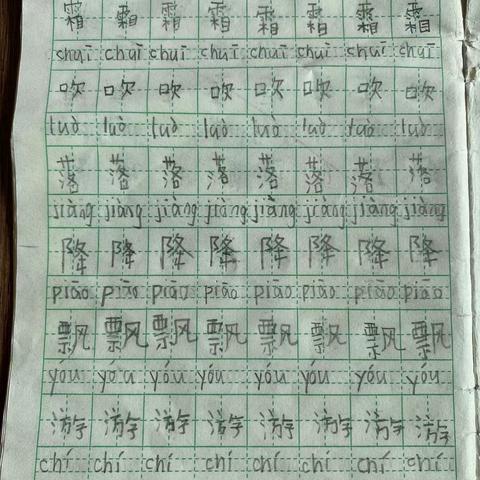 霜 霜 霜 霜 霜 霜 霜 霜
chuī chuī chuī chuī chuī chuī chuī chuī
吹 吹 吹 吹 吹 吹 吹 吹
luò luò luò luò luò luò luò luò
落 落 落 落 落 落 落 落
jiàng jiàng jiàng jiàng jiàng jiàng jiàng jiàng
降 降 降 降 降 降 降 降
piāo piāo piāo piāo piāo piāo piāo piāo
飘 飘 飘 飘 飘 飘 飘 飘
yóu yóu yóu yóu yóu yóu yóu yóu
游 游 游 游 游 游 游 游
chí chí chí chí chí chí chí chí